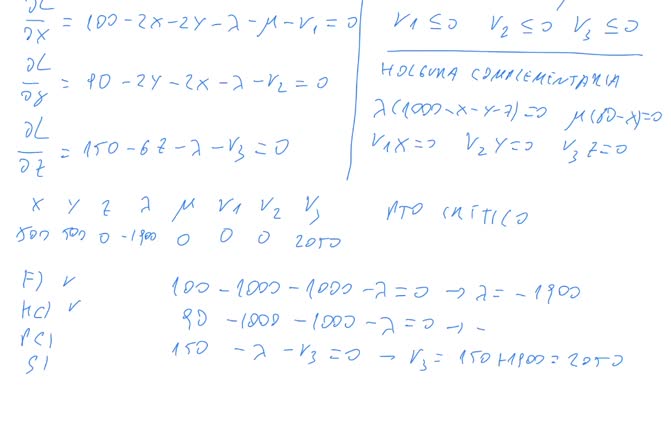 ∂L/∂X = 100 - 2X - 2Y - λ - μ - V1 = 0
∂L/∂y = 90 - 2Y - 2X - λ - V2 = 0
∂L/∂z = 150 - 6Z - λ - V3 = 0
V1 ≤ 0 V2 ≤ 0 V3 ≤ 0
HOLGURA COMPLEMENTARIA
λ(1000 - X - Y - Z) = 0 μ(80 - X) = 0
V1 X = 0 V2 Y = 0 V3 Z = 0
X Y Z λ μ V1 V2 V3 PTO CRÍTICO
500 500 0 -1900 0 0 0 2050
F) ✓ 100 - 1000 - 1000 - λ = 0 → λ = -1900
HC) ✓ 90 - 1000 - 1000 - λ = 0 → -
PC) 150 - λ - V3 = 0 → V3 = 150 + 1900 = 2050
S)